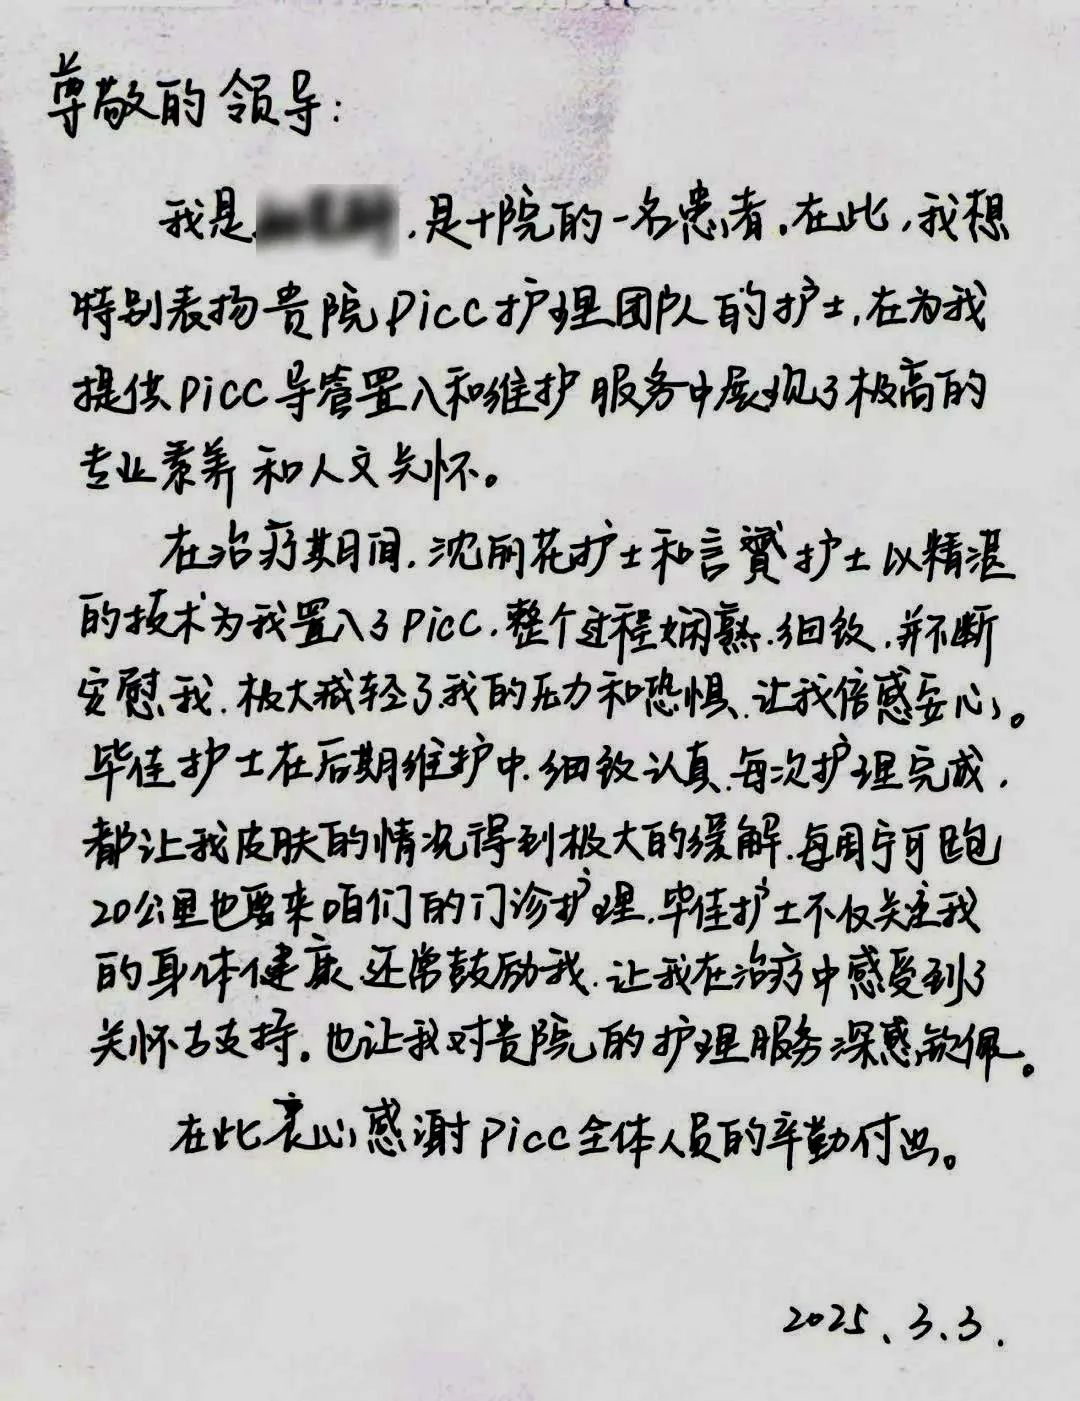 尊敬的领导:
我是 ,是十院的一名患者,在此,我想
特别表扬贵院Picc护理团队的护士,在为我
提供Picc导管置入和维护服务中展现了极高的
专业素养和人文关怀。
在治疗期间,沈丽花护士和言贇护士以精湛
的技术为我置入了Picc,整个过程娴熟、细致,并不断
安慰我,极大减轻了我的压力和恐惧、让我倍感安心。
毕佳护士在后期维护中、细致认真、每次护理完成,
都让我皮肤的情况得到极大的缓解,每周宁可跑
20公里也要来咱们的门诊护理,毕佳护士不仅关注我
的身体健康、还常鼓励我,让我在治疗中感受到了
关怀与支持。也让我对贵院的护理服务深感钦佩。
在此衷心感谢Picc全体人员的辛勤付出。
2025、3、3.